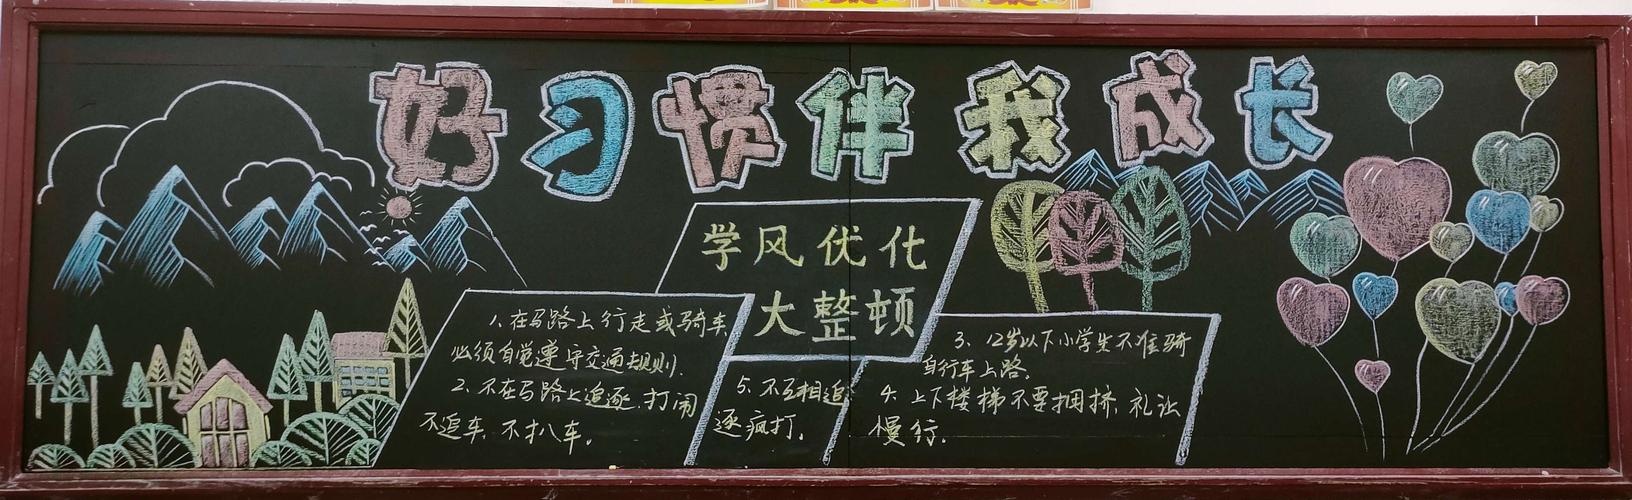 好习惯伴我成长
学风优化
大整顿
1、在马路上行走或骑车,
必须自觉遵守交通规则.
2、不在马路上追逐、打闹
不追车、不扒车。
5、不互相追
逐疯打,
3、12岁以下小学生不准骑
自行车上路。
4、上下楼梯不要拥挤、礼让
慢行.